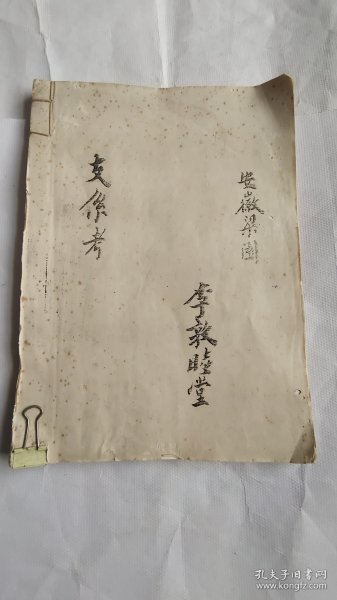 安徽梁園
李敦睦堂
支係考
孔夫子旧书网
www.kongfz.com